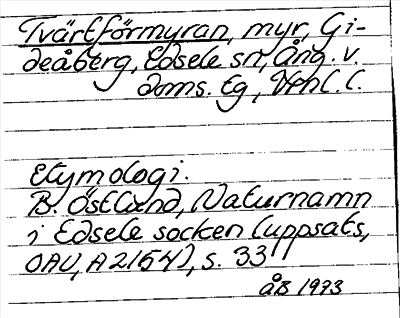 Tvärtförmyran, myr, Gi-
deåberg, Edsele sn, Ång. v.
doms. tg, Vrnl. l.
Etymologi.
B. Östlund, Naturnamn
i Edsele socken (uppsats,
OAU, A 2154), s. 33
ÅB 1973